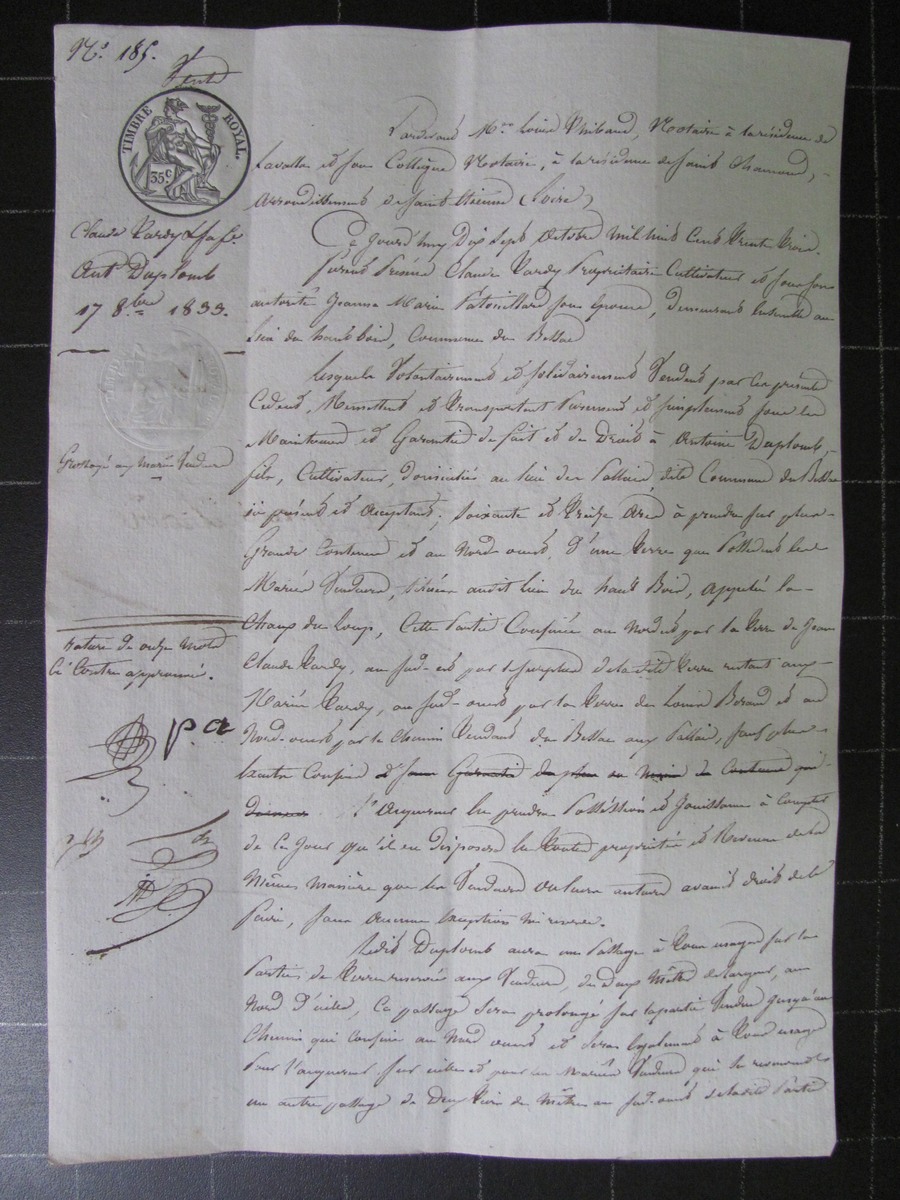 N.° 185.
Vente
TIMBRE ROYAL.
35c
Claude Tardy &
Ant. Duplomb
17 8.bre 1833.
Grossoyé aux Mariés Vendeurs
Rature de onze mots
ci Contre approuvé.
p. a
Pardevant M.e Louis Thibaud, Notaire à la résidence de
Lavalla et son Collègue Notaire, à la résidence de Saint Chamond,
Arrondissement de Saint Etienne (Loire)
Ce Jourd'huy Dix Sept Octobre Mil huit Cent Trente Trois.
Furent Présens Claude Tardy Propriétaire Cultivateur et sous son
autorité Jeanne Marie Patouillard son Epouse, demeurant Ensemble au
Lieu du haut bois, Commune du Bessac
Lesquels Volontairement et Solidairement Vendent par ces présentes
Cèdent, Remettent et Transportent Purement et simplement sous les
Maintenue et Garantie de fait et de Droit à Antoine Duplomb
fils, Cultivateur domicilié au lieu des Palliais dite Commune du Bessac
ici présent et Acceptant, Soixante et Treize Ares à prendre sur plus
Grande Contenue et au Nord-ouest, D'une Terre que Possèdent les
Mariés Vendeurs, Située audit lieu du haut Bois, appelée la
Champ du Loup, Cette Partie Confinée au Nord-est par la Terre de Jean
Claude Tardy, au Sud-est par le surplus de la dite Terre restant aux
Mariés Tardy, au Sud-ouest par la Terre de Louis Beraud et au
Nord-ouest par le Chemin Tendant du Bessac aux Palliais, sauf plus
Exacts Confins
L'Acquéreur En prendra Possession et Jouissance à Compter
de ce Jour qu'il en disposera En Toute propriété et Revenu de la
Même manière que les Vendeurs ou leurs auteurs avaient droit de le
faire, sans Aucune Exception ni réserve.
Ledit Duplomb aura un Passage à Tous usages sur la
Partie de Terre réservée aux Vendeurs, de Deux Mètres de largeur, au
Nord D'icelle, Ce passage Sera prolongé sur la partie Vendue Jusqu'au
Chemin qui Confine au Nord ouest et Sera Egalement à Tous usages
Pour l'acquéreur sur icelle et pour les Mariés Vendeurs qui se réservent
un autre passage de Deux Tiers de Mètres au Sud-ouest de ladite Partie